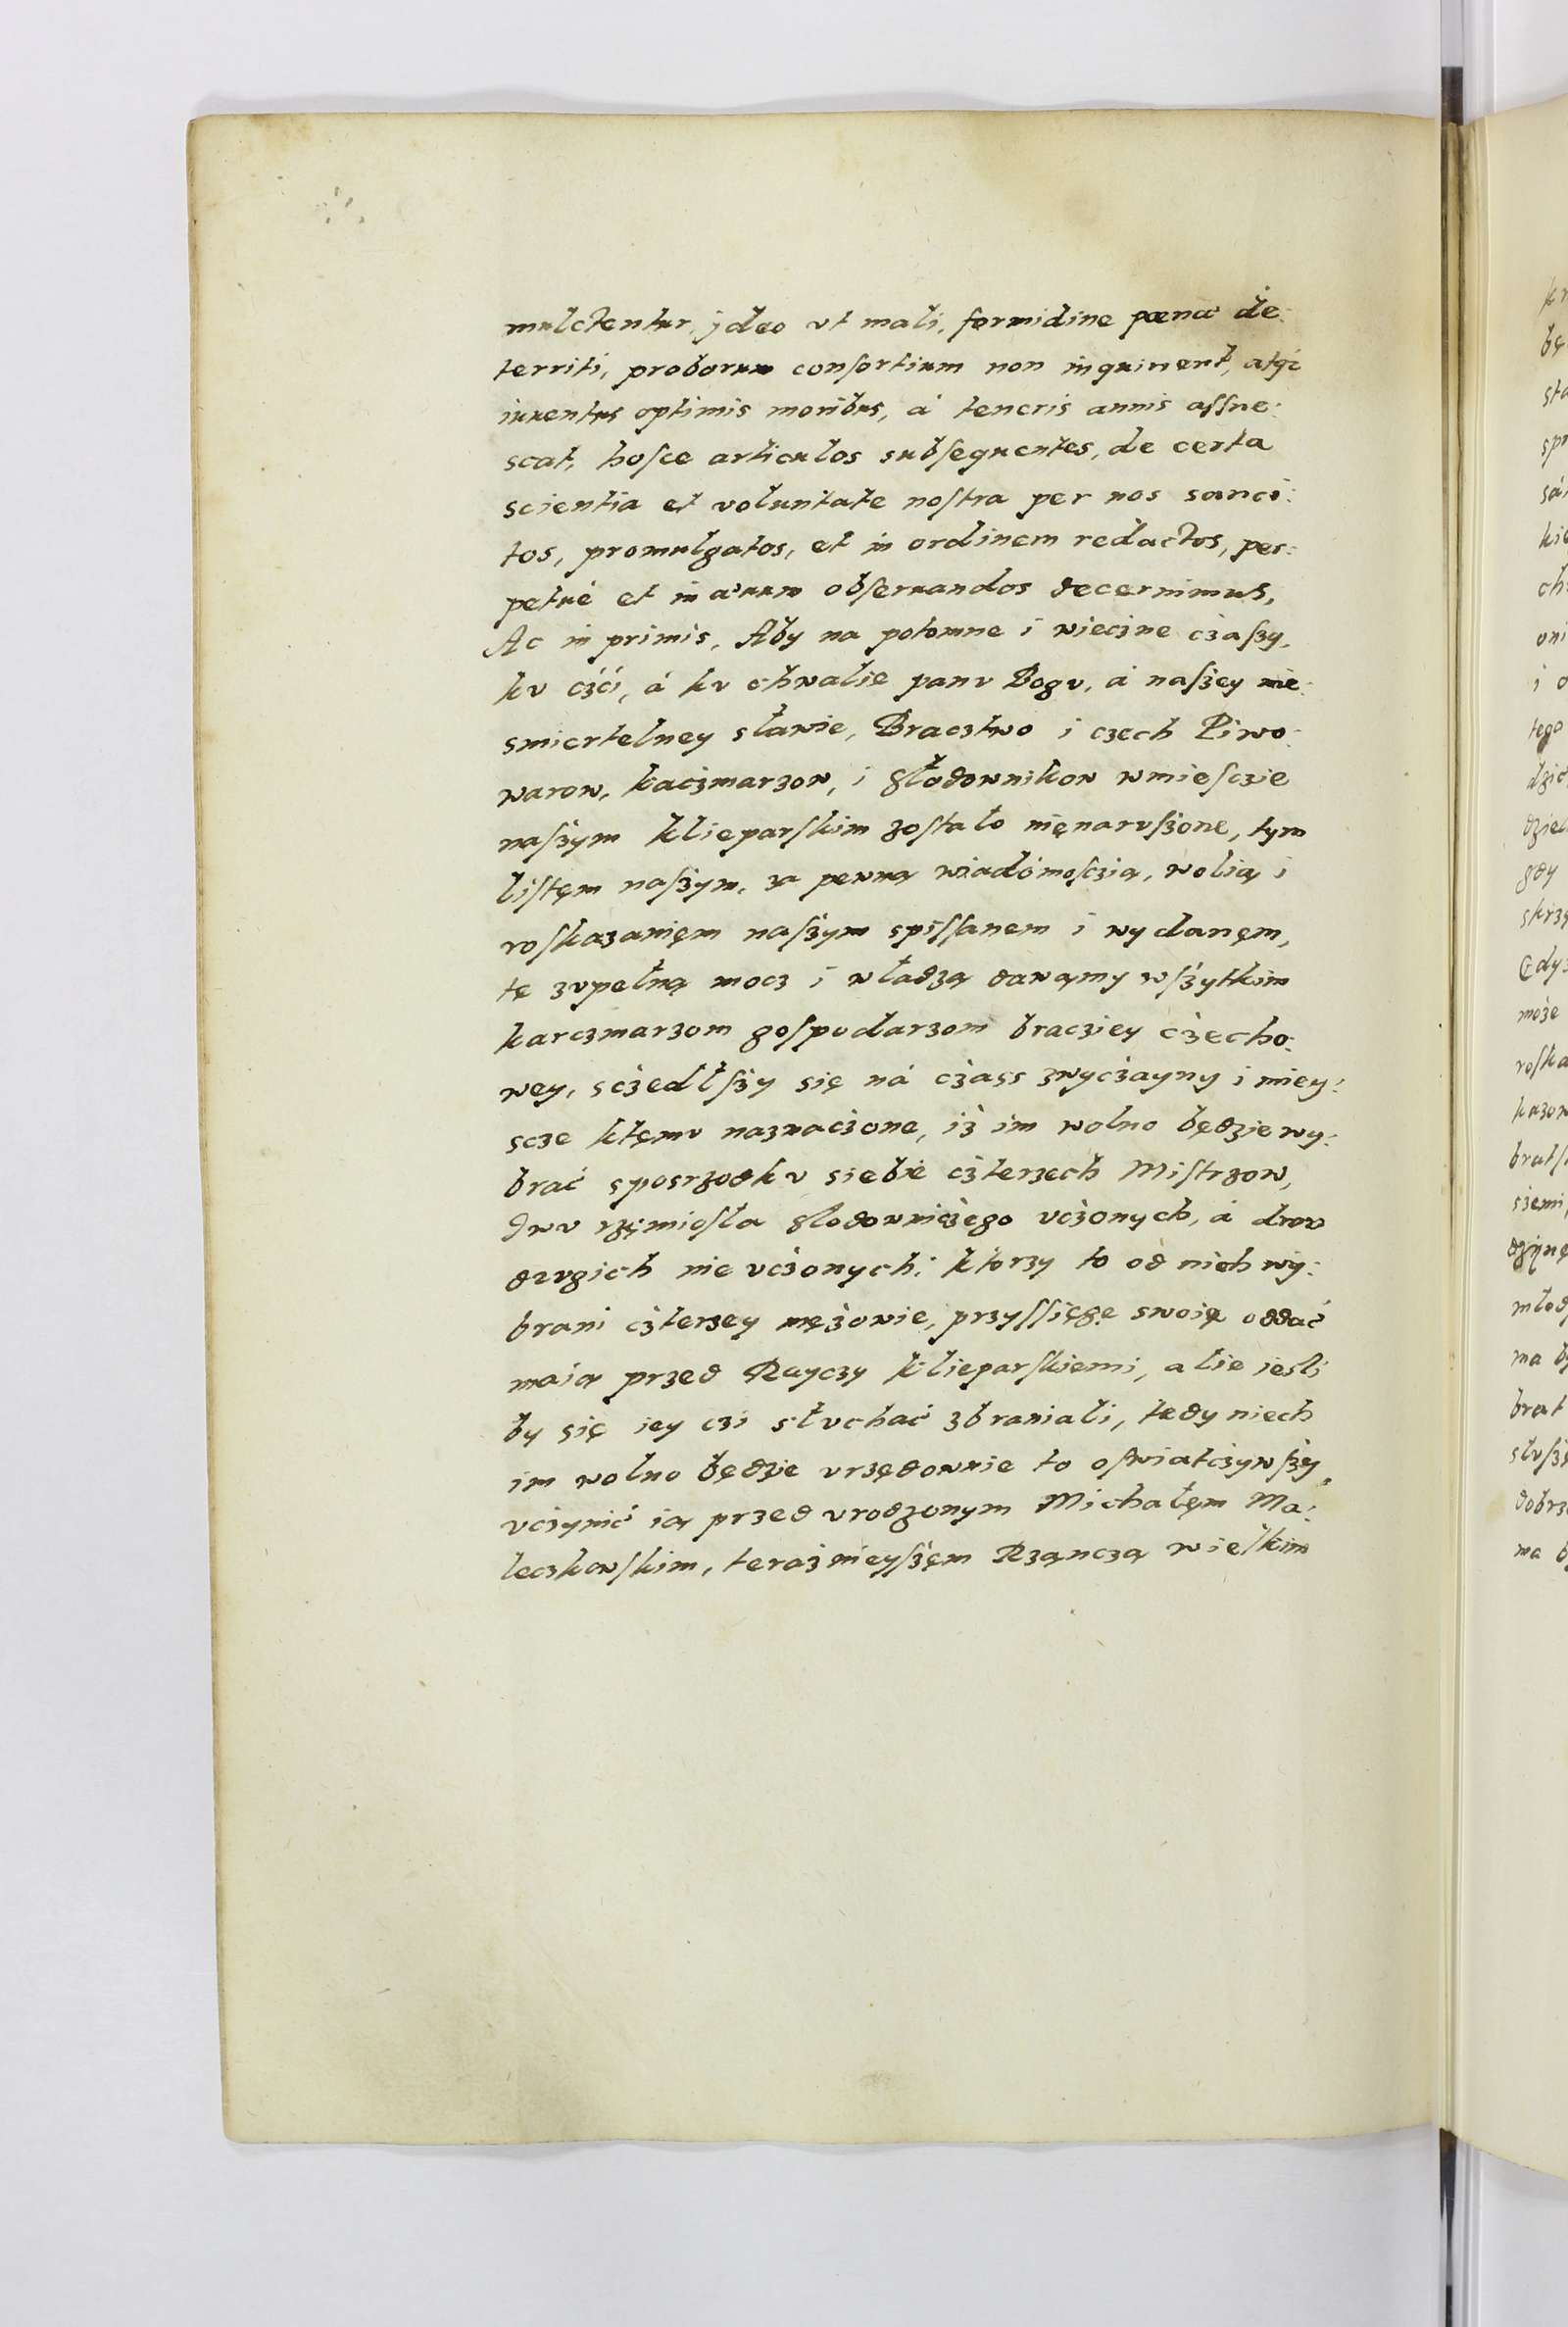 mulctentur, jdeo vt mali, formidine pœnæ de:
territi, proborum consortium non inquinent, atq́;
iuuentus optimis moribus, á teneris annis aſſue:
scat, hoſce articulos subſequentes, de certa
scientia et voluntate noſtra per nos sanci:
tos, promulgatos, et in ordinem redactos, per:
petué et in æuum obſeruandos decernimus,
Ac in primis, Aby na potomne i wieczne czaſzy,
kv czći, á kv chwalie panv Bogv, á naſzey nie:
smiertelney sławie, Bractwo i czech Piwo:
warow, kaczmarzow, i słodownikow wmieſczie
naſzym klieparſkim zoſtało nięnarvſzone, tym
liſtęm naſzym, za pewną wiadómoſczią, wolią i
roſkazanięm naſzym spiſſanem i wydanęm,
tę zvpełną mocz i władzą dawąmy wſzytkim
karczmarzom goſpodarzom bracziey czecho:
wey, sczedłſzy się ná czass zwyczayny i miey:
scze ktęmv naznaczone, iż im wolno będzie wy:
brać sposrzodkv siebie czterzech Miſtrzow,
dwv rzęmioſła słodowniczego vczonych, á dwv
drvgich nie vczonych: ktorzy to od nich wy:
brani czterzey mężowie, przyſſięgę swoię oddać
maią przed Rayczy klieparſkiemi, a lie ieſli
by się iey czi słvchać zbraniali, tedy niech
im wolno będzie vrzędownie to oſwiatczywſzy,
vczynić ią przed vrodzonym Michałęm Ma:
leczkowſkim, teraznieyſzęm Rządczą wielkim